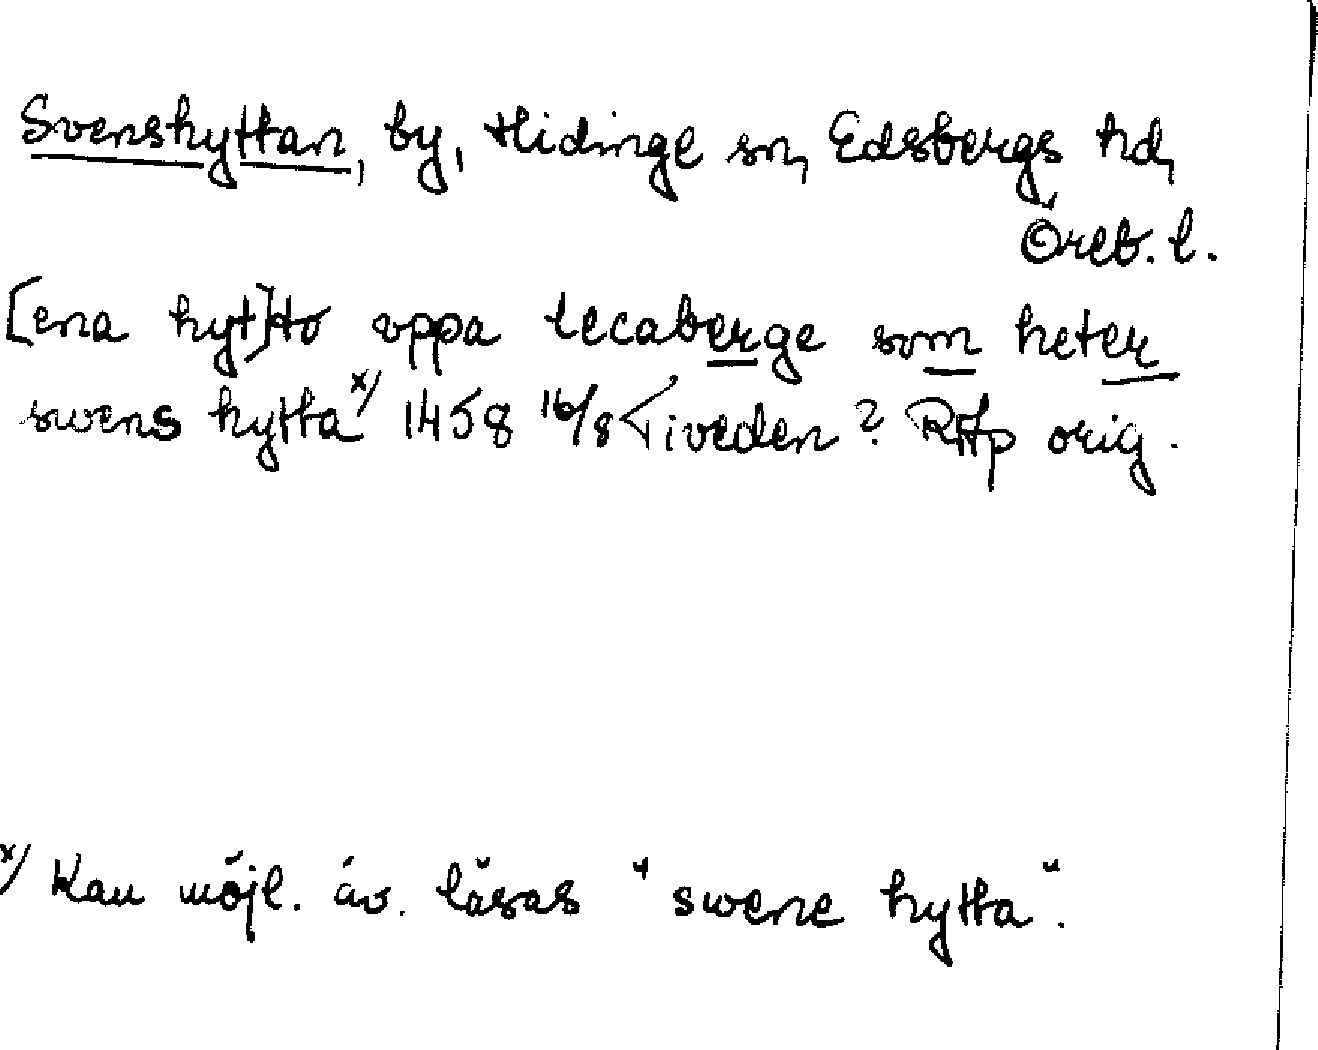 Svenshyttan, by, Hidinge sn, Edsbergs hd,
Öreb. l.
[ena hyt]to oppa lecaberge som heter
swens hytta x/ 1458 16/8 Tiveden? RAp orig.
x/ Kan möjl. äv. läsas "swene hytta".